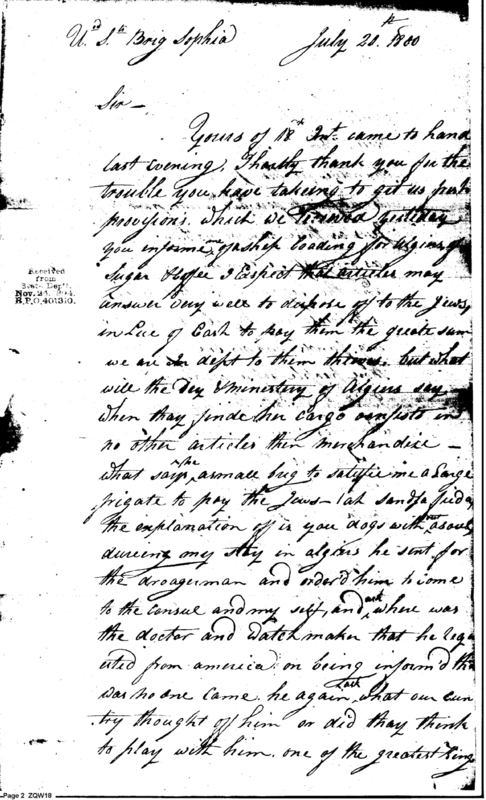 U.d S.ts Brig Sophia July 20.th 1800
Sir —
Yours of 18th Inst. came to hand
last Evening, I hartly thank you for the
trouble you have takeing to get us
provisions which we
you informe me of a ship loading for Algiers of
Sugar & Coffee I Expect that articles may
answer very well to dispose off to the Jews,
in Lue of Cash to pay them the greate sum
we are in dept to them but what
will the Dey & minestery of Algiers say
when thay finde her cargo consists in
no other articles then merchandize —
what says he a small brig to satisfie me a Large
frigate to pay the Jews —
the explanation off is you dogs with out a soul
dureing my stay in algiers he sent for
the droagerman and order'd him to come
to the consul and my self, and ask where was
the doctor and Watchmaker that he requ
ested from america on being inform'd thare
was no one came. he again ask what our cun
try thought off him or did thay think
to play with him. one of the greatest kings
Received
from
State Dep't.
Nov. 24,
R.P.O. 401310.
Page 2 ZQW18